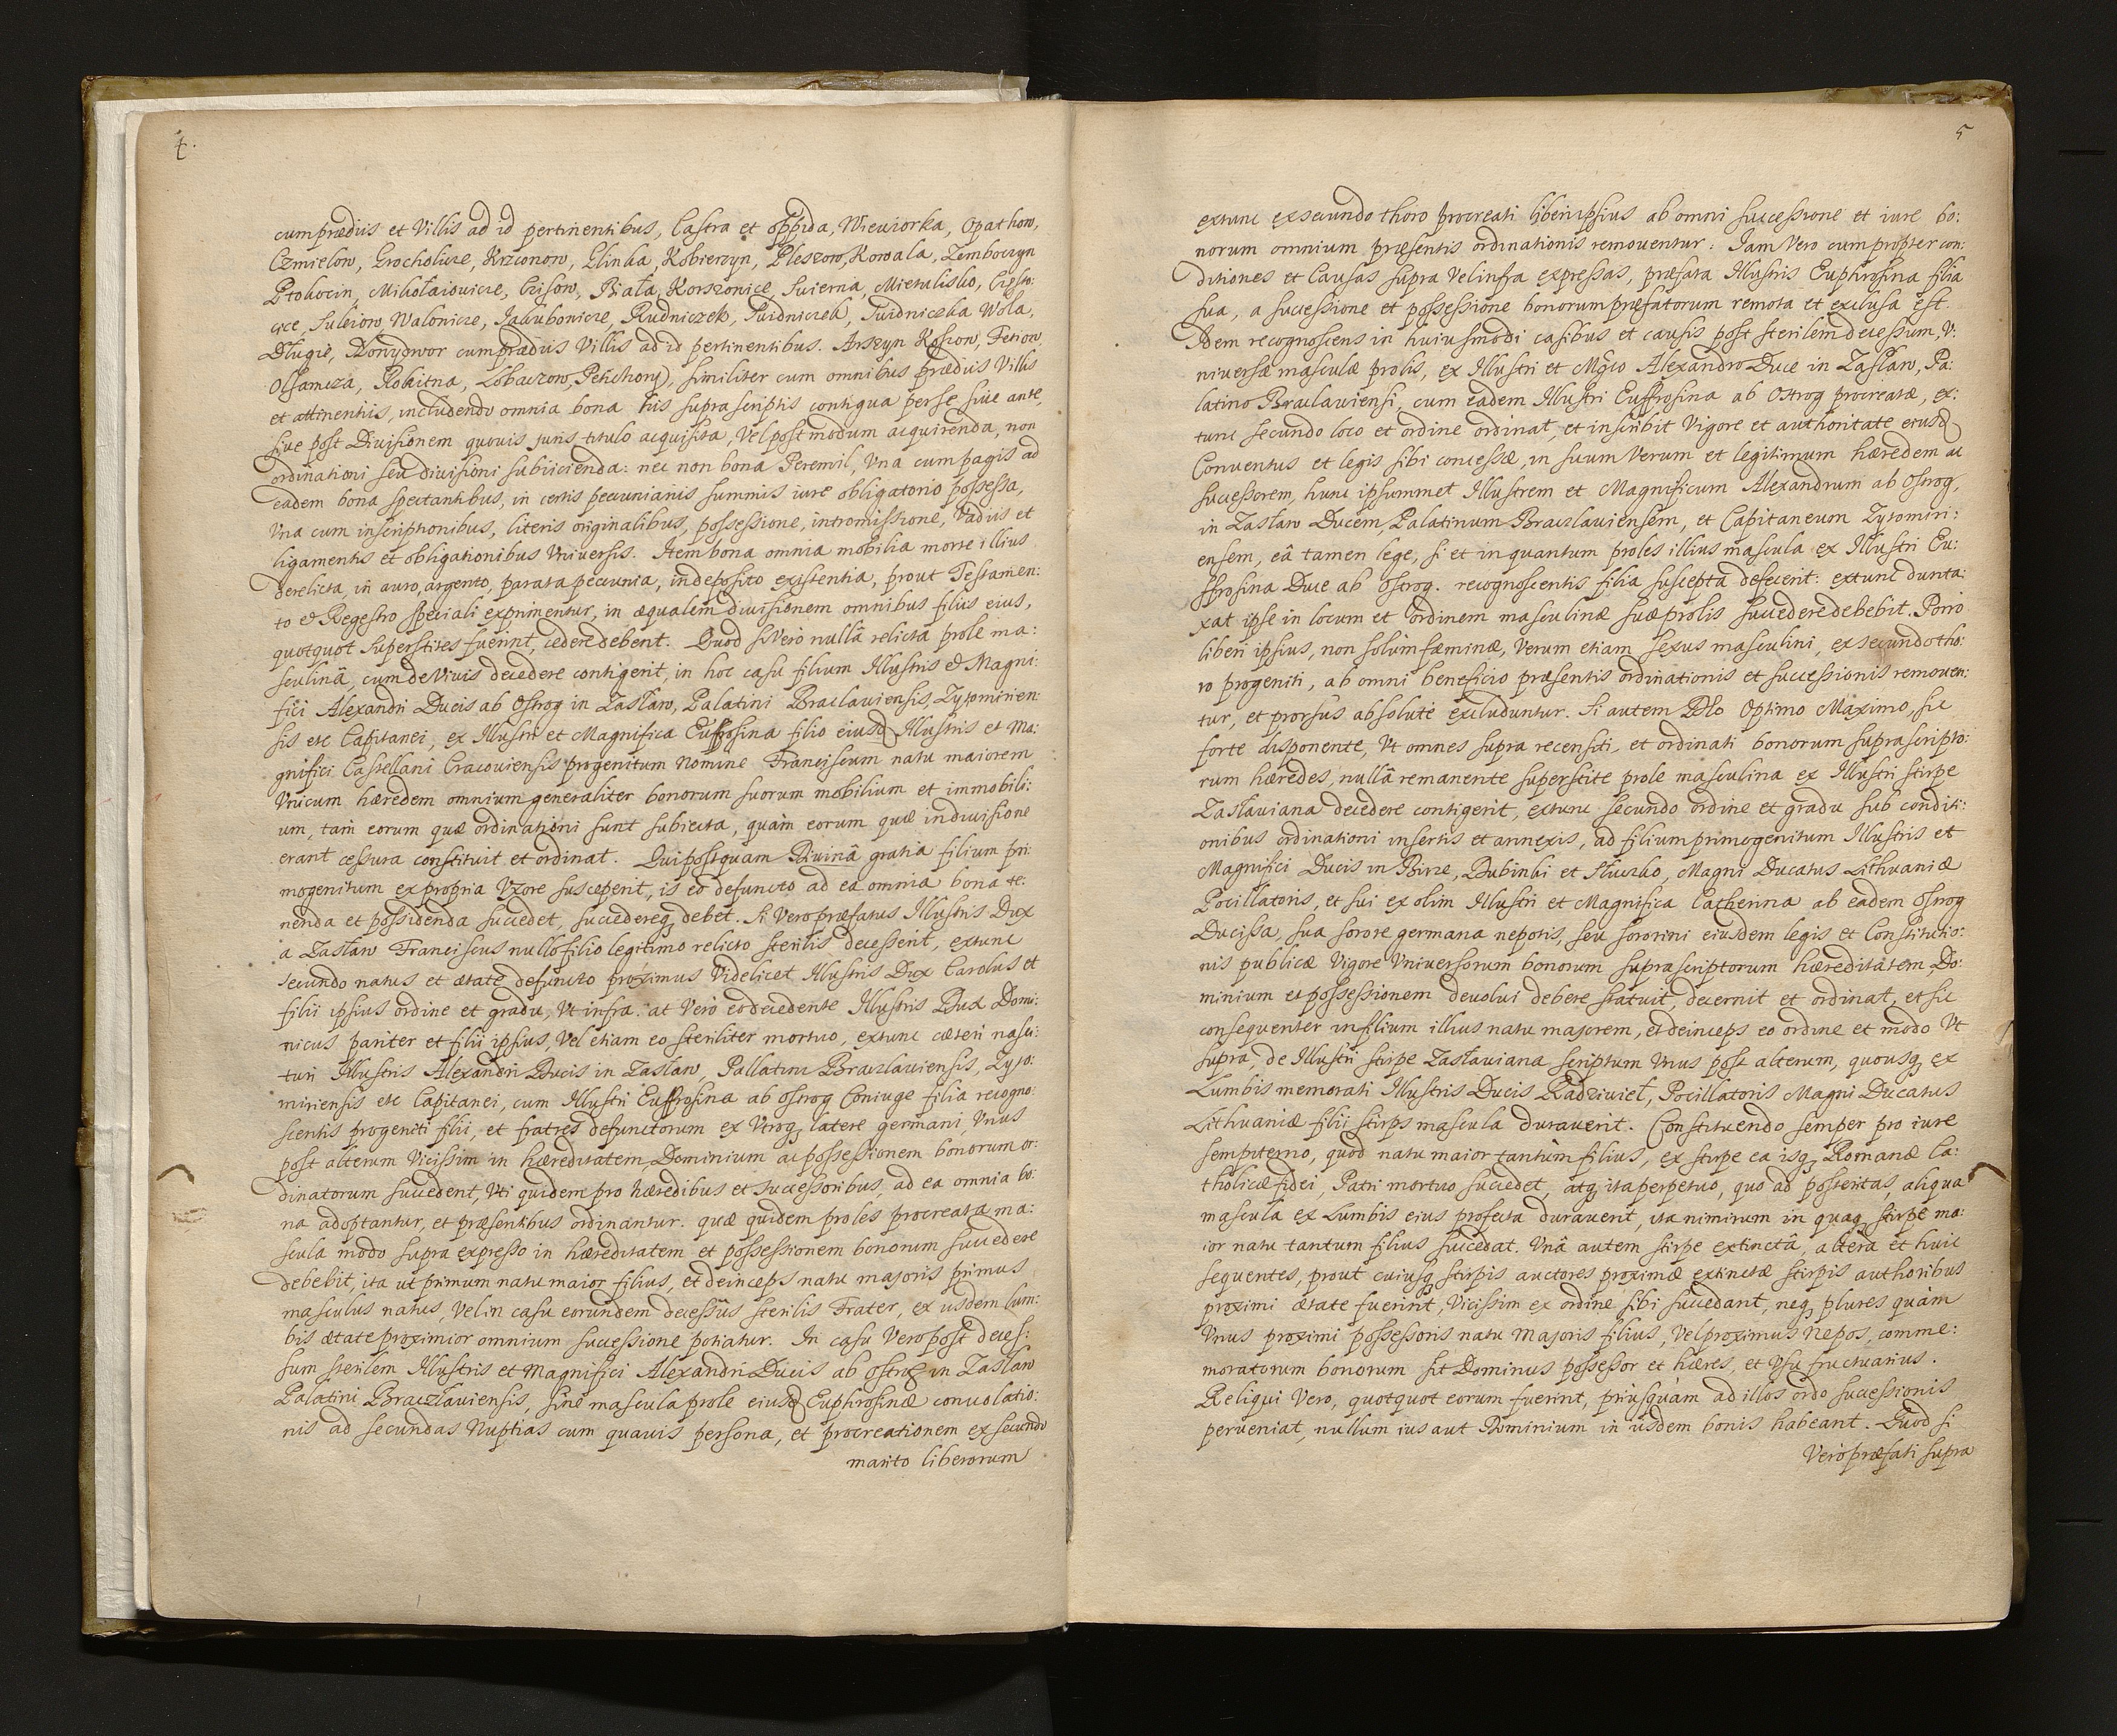 4.
cum prædiis et Villis ad id pertinentibus, Castra et oppida, Wiewiorka, Opathow,
Czmielow, Grocholice, Krzconow, Glinka, Kobierzyn, Pleszow, Kowala, Zemborzyn
Ptokocin, Mikołaiowice, Czisow, Biała, Korszonice, Swierna, Mietulisko, Czesto:
cice, Suleiow, Walonicze, Iakubowicze, Rudniczek, Swidniczek, Swidniczka Wola,
Długie, Nowydwor cum prædiis Villis ad id pertinentibus. Arszyn Kossow, Fetiow,
Olsamcza, Rokitna, Lobaczow, Petichow, similiter cum omnibus prædiis Villis
et attinentiis, includendo omnia bona his suprascriptis contigua per se siue ante,
siue post Diuisionem quouis juris titulo acquisita, Vel postmodum acquirenda, non
ordinationi seu diuisioni subiicienda: nec non bona Peremil, Vna cum pagis ad
eadem bona spectantibus, in certis pecuniariis summis iure obligatorio possessa,
Vna cum inscriptionibus, literis originalibus, possessione, intromissione, Vadiis et
ligamentis et obligationibus Vniuersis. Item bona omnia mobilia morte illius
derelicta, in auro, argento, parata pecunia, in deposito existentia, prout Testamen:
to & Regestro speciali exprimentur, in æqualem diuisionem omnibus filiis eius,
quotquot superstites fuerint, cedere debent. Quod si Vero nullâ relicta prole ma:
sculinâ, cum de Viuis decedere contigerit, in hoc casu filium Illustris & Magni:
fici Alexandri Ducis ab Ostrog in Zasław, Palatini Braclauiensis, Zytomirien:
sis etc Capitanei, ex Illustri et Magnifica Euffrosina filio eiusd Illustris et Ma:
gnifici Castellani Cracouiensis progenitum Nomine Franciscum natu maiorem
Vnicum hæredem omnium generaliter bonorum suorum mobilium et immobili:
um, tam eorum quæ ordinationi sunt subiecta, quàm eorum quæ in diuisione
erant cessura constituit et ordinat. Qui postquam Diuinâ gratia filium pri:
mogenitum ex propria Vxore susceperit, is eo defuncto ad ea omnia bona te:
nenda et possidenda succedet, succedereq debet. Si Vero præfatus Illustris Dux
a Zasław Franciscus nullo filio legitimo relicto sterilis decesserit, extunc
secundo natus et ætate defuncto proximus Videlicet Illustris Dux Carolus et
filii ipsius ordine et gradu, Vt infra. at Verò eo decedente Illustris Dux Domi:
nicus pariter et filii ipsius, Vel etiam eo steriliter mortuo, extunc cæteri nasci:
turi Illustris Alexandri Ducis in Zasław, Pallatini Braczlauiensis, Zyto:
miriensis etc Capitanei, cum Illustri Euffrosina ab Ostrog Coniuge filia recogno:
scentis progeniti filii, et fratres defunctorum ex Vtroq latere germani, Vnus
post alterum Vicissim in hæreditatem Dominium ac possessionem bonorum or:
dinatorum succedent, Vti quidem pro hæredibus et successoribus, ad ea omnia bo:
na adoptantur, et præsentibus ordinantur. quæ quidem proles procreata ma:
scula modo supra expresso in hæreditatem et possessionem bonorum succedere
debebit, ita ut primum natu maior filius, et deinceps natu majoris primus
masculus natus, Vel in casu eorundem decessus sterilis Frater, ex iisdem lum:
bis ætate proximior omnium successione potiatur. In casu Vero post deces:
sum sterilem Illustris et Magnifici Alexandri Ducis ab Ostrog in Zasław
Palatini Braczlauiensis, sine mascula prole eiusd Euphrosinæ conuolatio:
nis ad secundas Nuptias cum quauis persona, et procreationem ex secundo
marito liberorum
5
extunc ex secundo thoro procreati liberi ipsius ab omni successione et iure bo:
norum omnium præsentis ordinationis remouentur: Iam Vero cum propter con:
ditiones et Causas supra Vel infra expressas, præfata Illustris Euphrosina filia
sua, a successione et possessione bonorum præfatorum remota et exclusa est.
Idem recognoscens in huiusmodi casibus et causis post sterilem decessum, V:
niuersæ masculæ prolis, ex Illustri et Mgco Alexandro Duce in Zasław, Pa:
latino Braclauiensi, cum eadem Illustri Euffrosina ab Ostrog procreatæ, ex:
tunc secundo loco et ordine ordinat, et inscribit Vigore et authoritate eiusd
Conuentus et legis sibi concessæ, in suum Verum et legitimum hæredem ac
successorem, hunc ipsummet Illustrem et Magnificum Alexandrum ab Ostrog,
in Zasław Ducem, Palatinum Braczlauiensem, et Capitaneum Zytomiri:
ensem, eâ tamen lege, si et in quantum proles illius mascula ex Illustri Eu:
ffrosina Duce ab Ostrog. recognoscentis filia suscepta defecerit: extunc dunta:
xat ipse in locum et ordinem masculinæ suæ prolis succedere debebit. Porro
liberi ipsius, non solùm fæminæ, Verum etiam sexus masculini, ex secundo tho:
ro progeniti, ab omni beneficio præsentis ordinationis et successionis remouen:
tur, et prorsus absolutè excluduntur. Si autem Dƚo Optimo Maximo, sic
forte disponente, Vt omnes supra recensiti, et ordinati bonorum suprascripto:
rum hæredes, nullâ remanente superstite prole masculina ex Illustri stirpe
Zaslauiana decedere contigerit, extunc secundo ordine et gradu sub conditi:
onibus ordinationi insertis et annexis, ad filium primogenitum Illustris et
Magnifici Ducis in Birze, Dubinki et Słuczko, Magni Ducatus Lithuaniæ
Pocillatoris, et sui ex olim Illustri et Magnifica Catherina ab eadem Ostrog
Ducissa, sua sorore germana nepotis, seu sororini eiusdem legis et Constitutio:
nis publicæ Vigore Vniuersorum bonorum suprascriptorum hæreditatem, Do:
minium et possessionem deuolui debere statuit, decernit et ordinat, et sic
consequenter in filium illius natu majorem, et deinceps eo ordine et modo Vt
supra de Illustri stirpe Zasłauiana scriptum Vnus post alterum, quousq ex
Lumbis memorati Illustris Ducis Radziwieł, Pocillatoris Magni Ducatus
Lithuaniæ filii stirps mascula durauerit. Constituendo semper pro iure
sempiterno, quod natu maior tantùm filius, ex stirpe ea isq Romanæ Ca:
tholicæ fidei, Patri mortuo succedet, atq ita perpetuo, quo ad posteritas aliqua
mascula ex Lumbis eius profecta durauerit, ita nimirum in quaq stirpe ma:
ior natu tantum filius succedat. Vnâ autem stirpe extinctâ, altera et huic
sequentes, prout cuiusq stirpis auctores proximæ extinctæ stirpis authoribus
proximi ætate fuerint, Vicissim ex ordine sibi succedant, neq plures quàm
Vnus proximi possessoris natu majoris filius, Vel proximus Nepos, comme:
moratorum bonorum sit Dominus possessor et hæres, et Vsu fructuarius.
Reliqui Vero, quotquot eorum fuerint, priusquàm ad illos ordo successionis
perueniat, nullum ius aut Dominium in iisdem bonis habeant. Quod si
Vero præfati supra